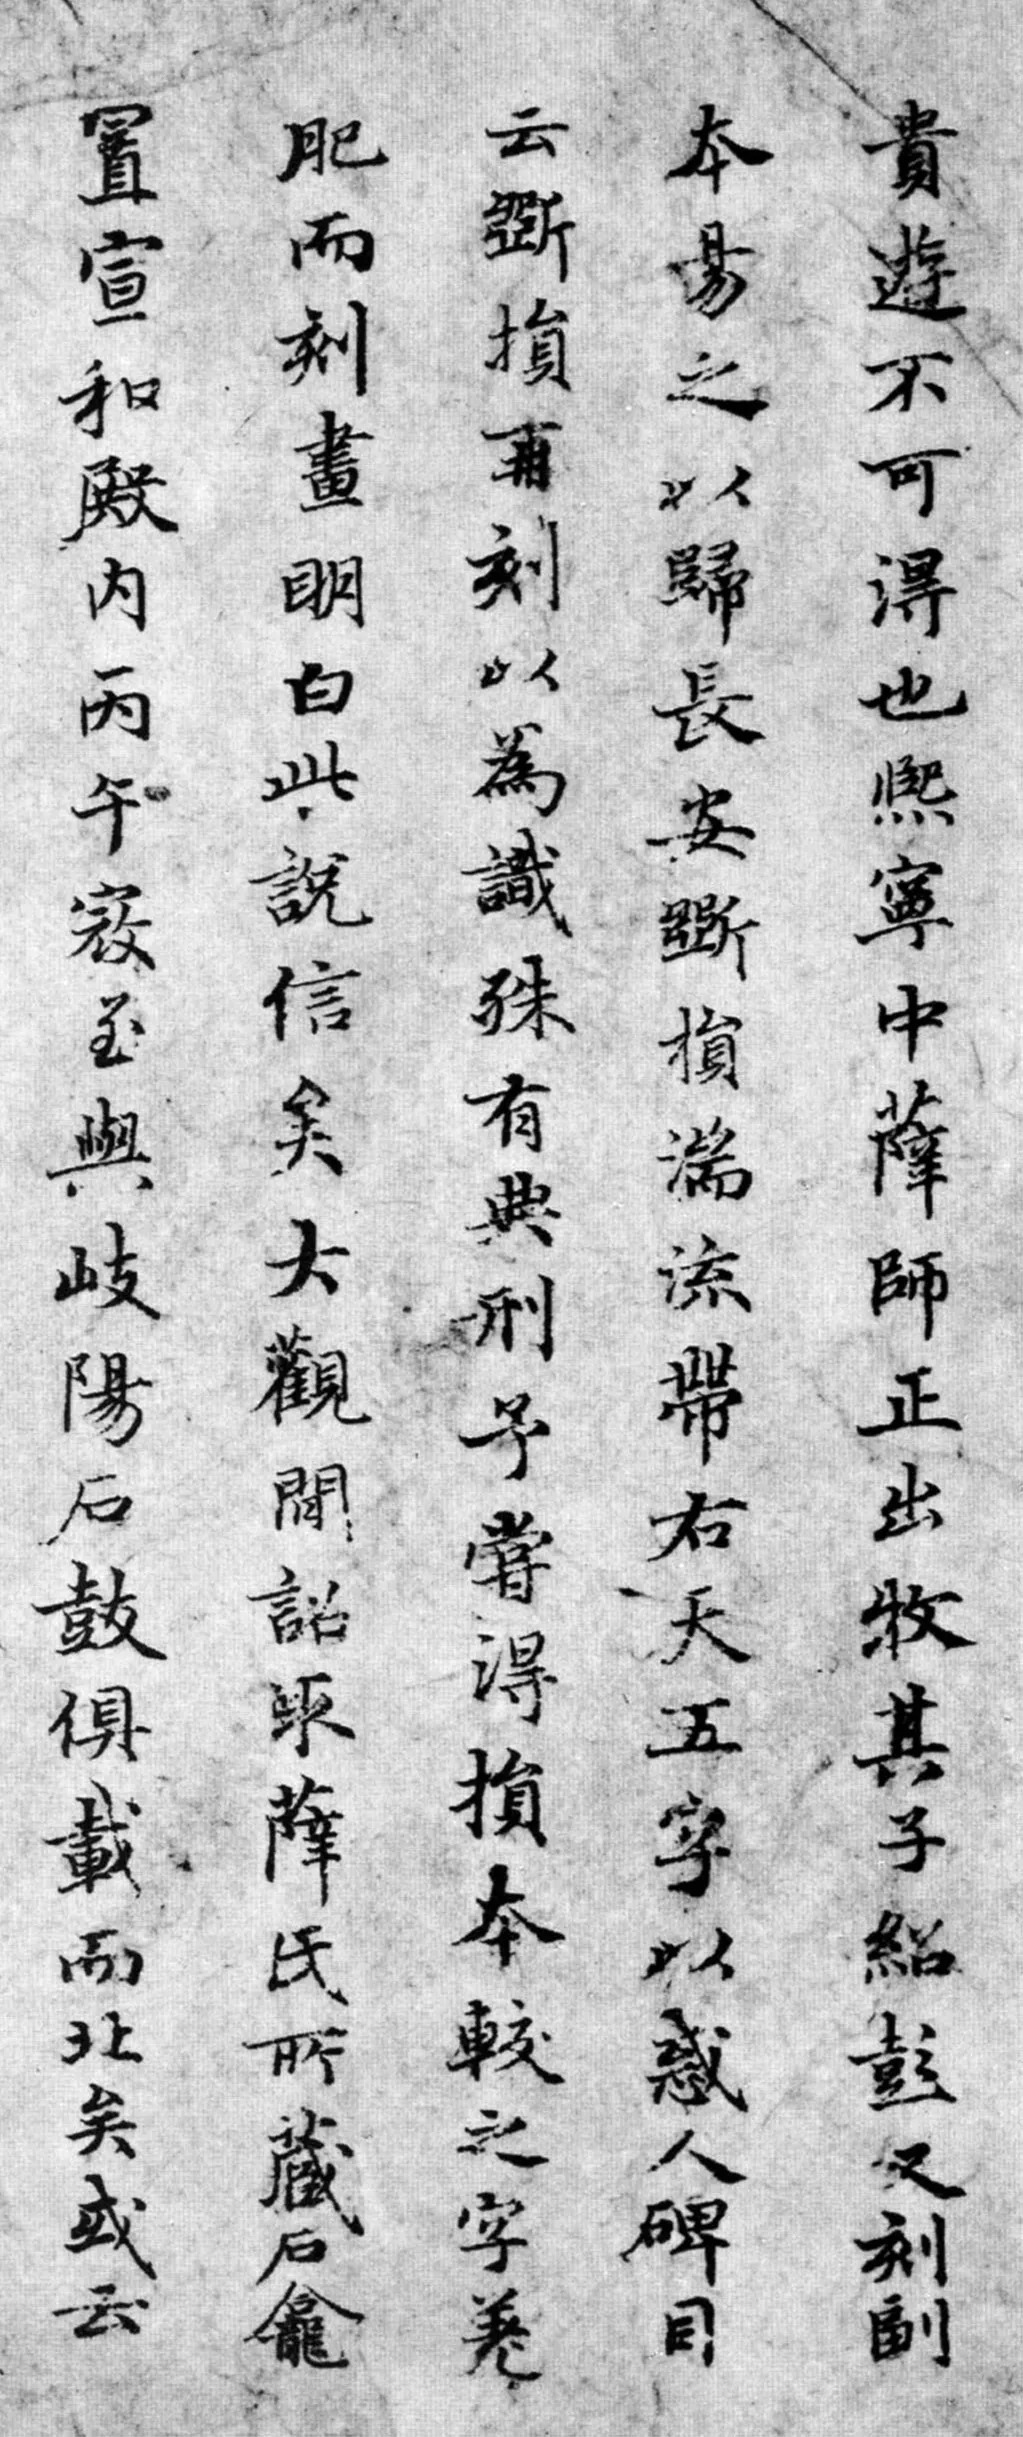 貴遊不可得也熈寧中薛師正出牧其子紹彭又刻副
本易之以歸長安斷損湍流帶右天五字以惑人碑目
云斷損再刻以為識殊有典刑予嘗得損本較之字差
肥而刻畫明白此說信矣大觀間詔取薛氏所藏石龕
置宣和殿內丙午寇至與岐陽石鼓俱載而北矣或云